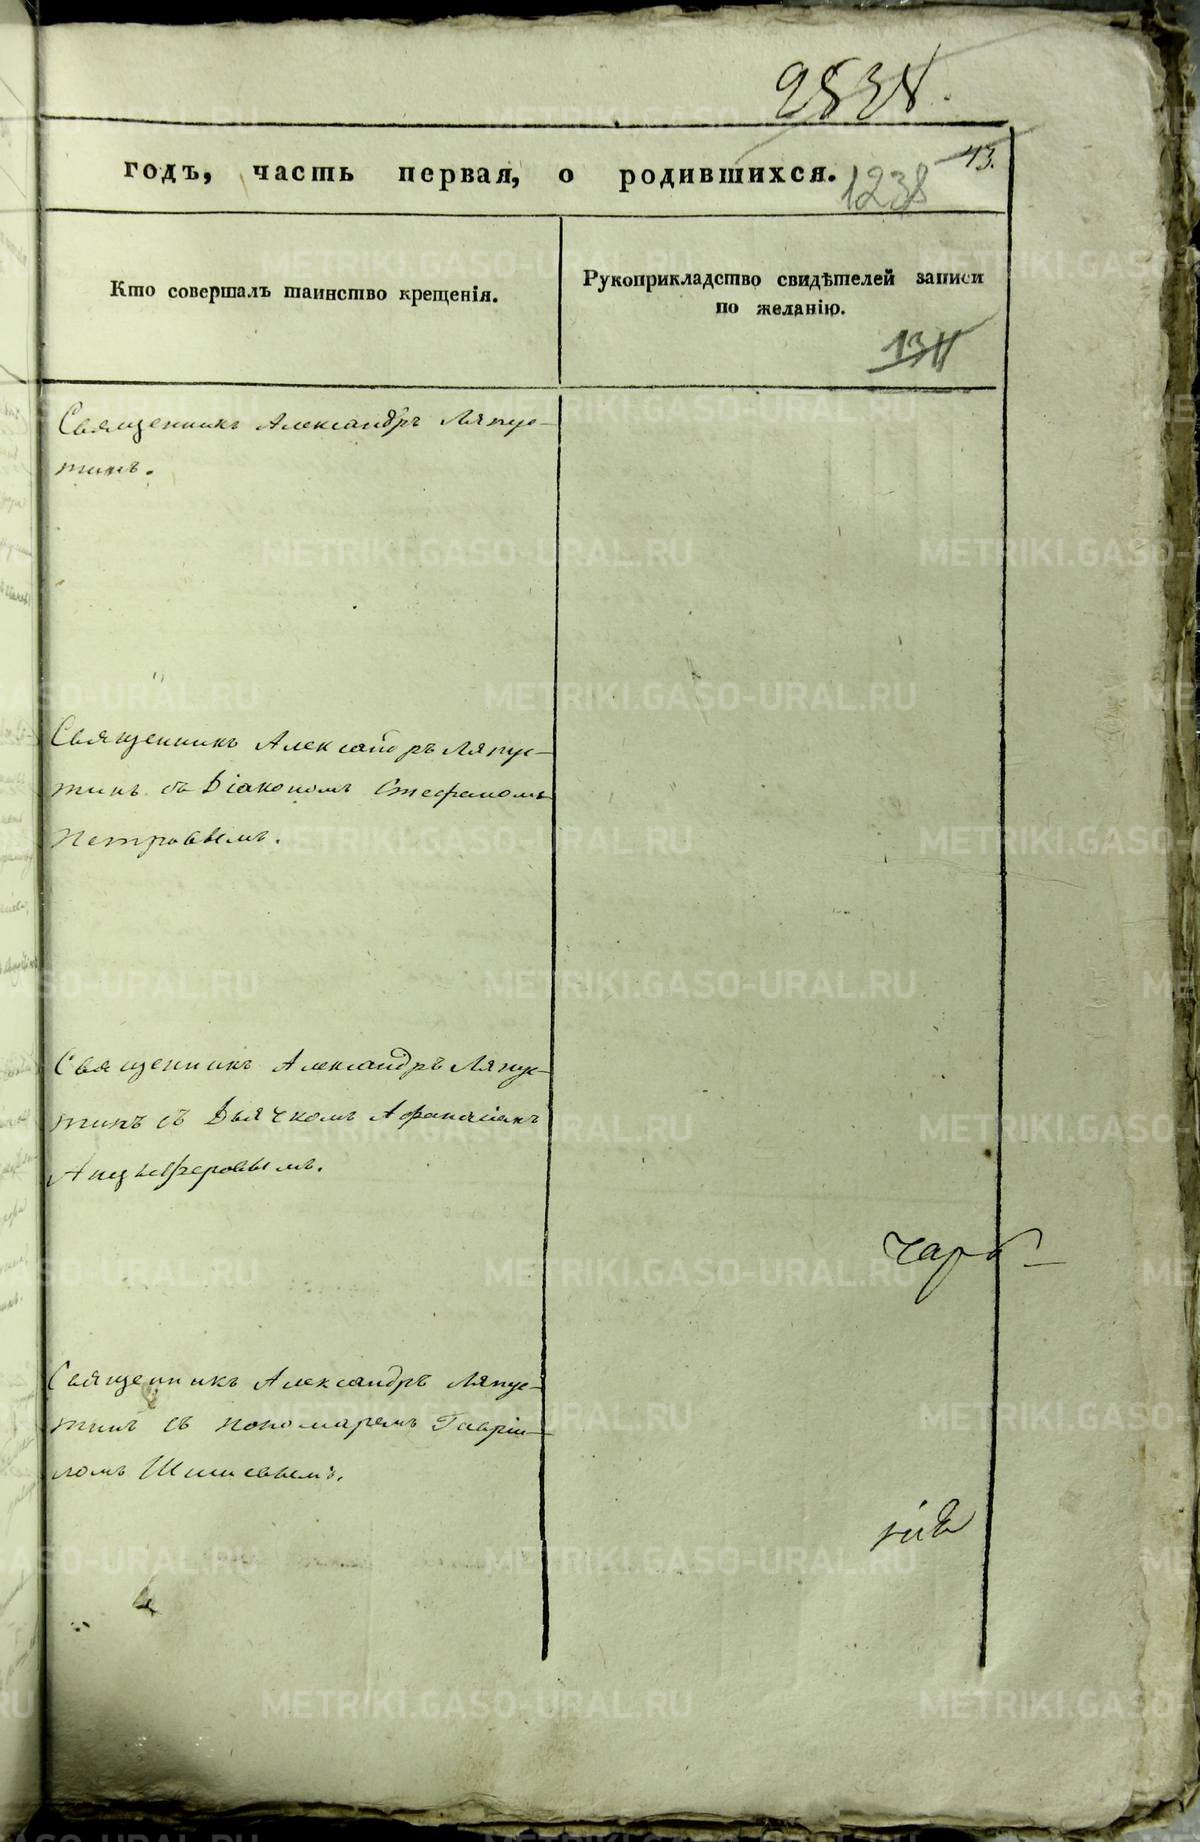 2838.
13.
годъ, часть первая, о родившихся. 1238
Кто совершалъ таинство крещенія.
Рукоприкладство свидѣтелей записи
по желанію.
Священникъ Александръ Ляпус-
тинъ.
Священникъ Александръ Ляпус-
тинъ съ Діакономъ Стефаномъ
Петровымъ.
Священникъ Александръ Ляпус-
тинъ съ Дьячкомъ Афанасіемъ
Анцыферовымъ.
Священникъ Александръ Ляпус-
тинъ съ пономаремъ Гаврі-
ломъ Шишевымъ.
METRIKI.GASO-URAL.RU